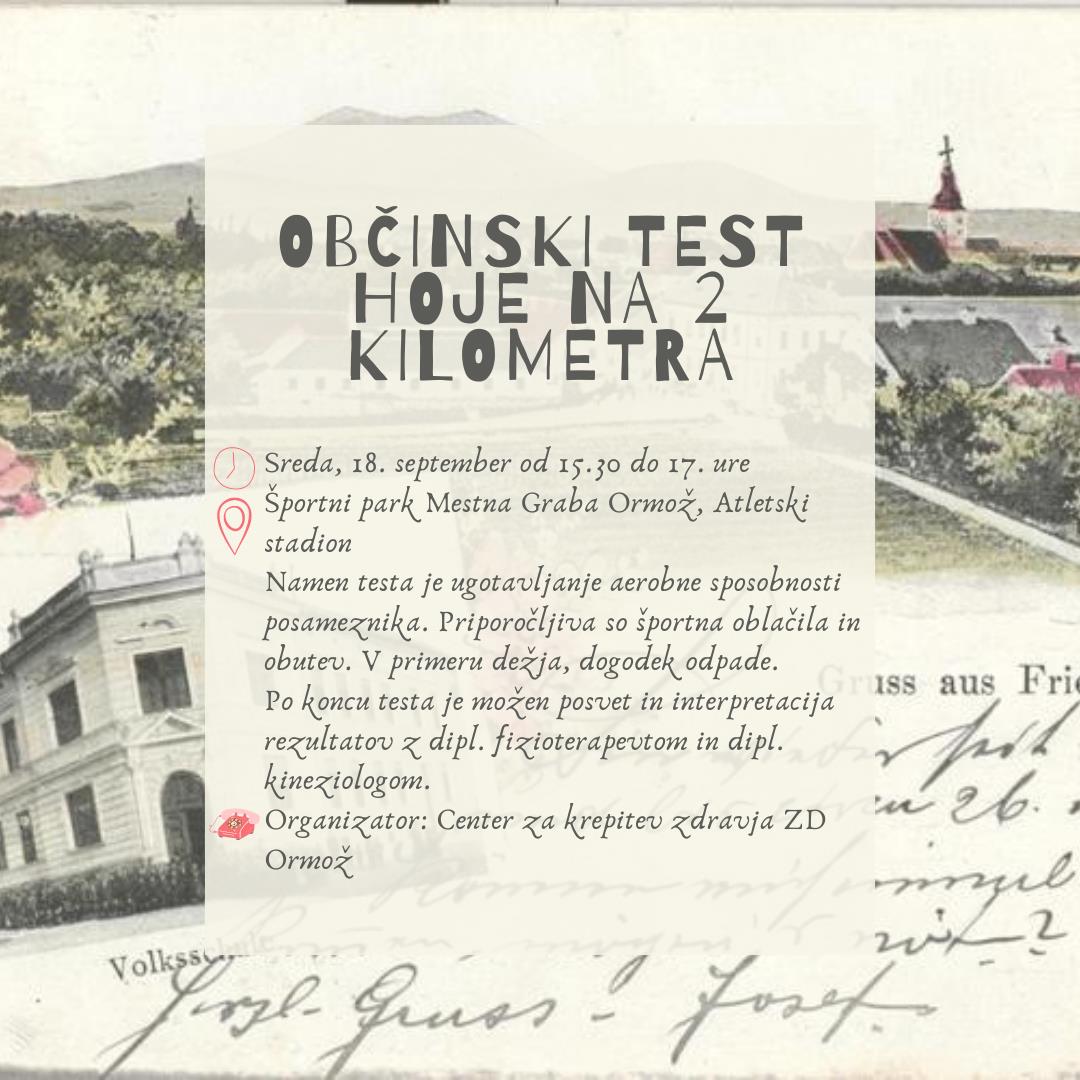 OBČINSKI TEST
HOJE NA 2
KILOMETRA
Sreda, 18. september od 15.30 do 17. ure
Športni park Mestna Graba Ormož, Atletski
stadion
Namen testa je ugotavljanje aerobne sposobnosti
posameznika. Priporočljiva so športna oblačila in
obutev. V primeru dežja, dogodek odpade.
Po koncu testa je možen posvet in interpretacija
rezultatov z dipl. fizioterapevtom in dipl.
kineziologom.
Organizator: Center za krepitev zdravja ZD
Ormož
Gruss aus Frie
26.
Volksschule
Herzl. Gruss! Josef.